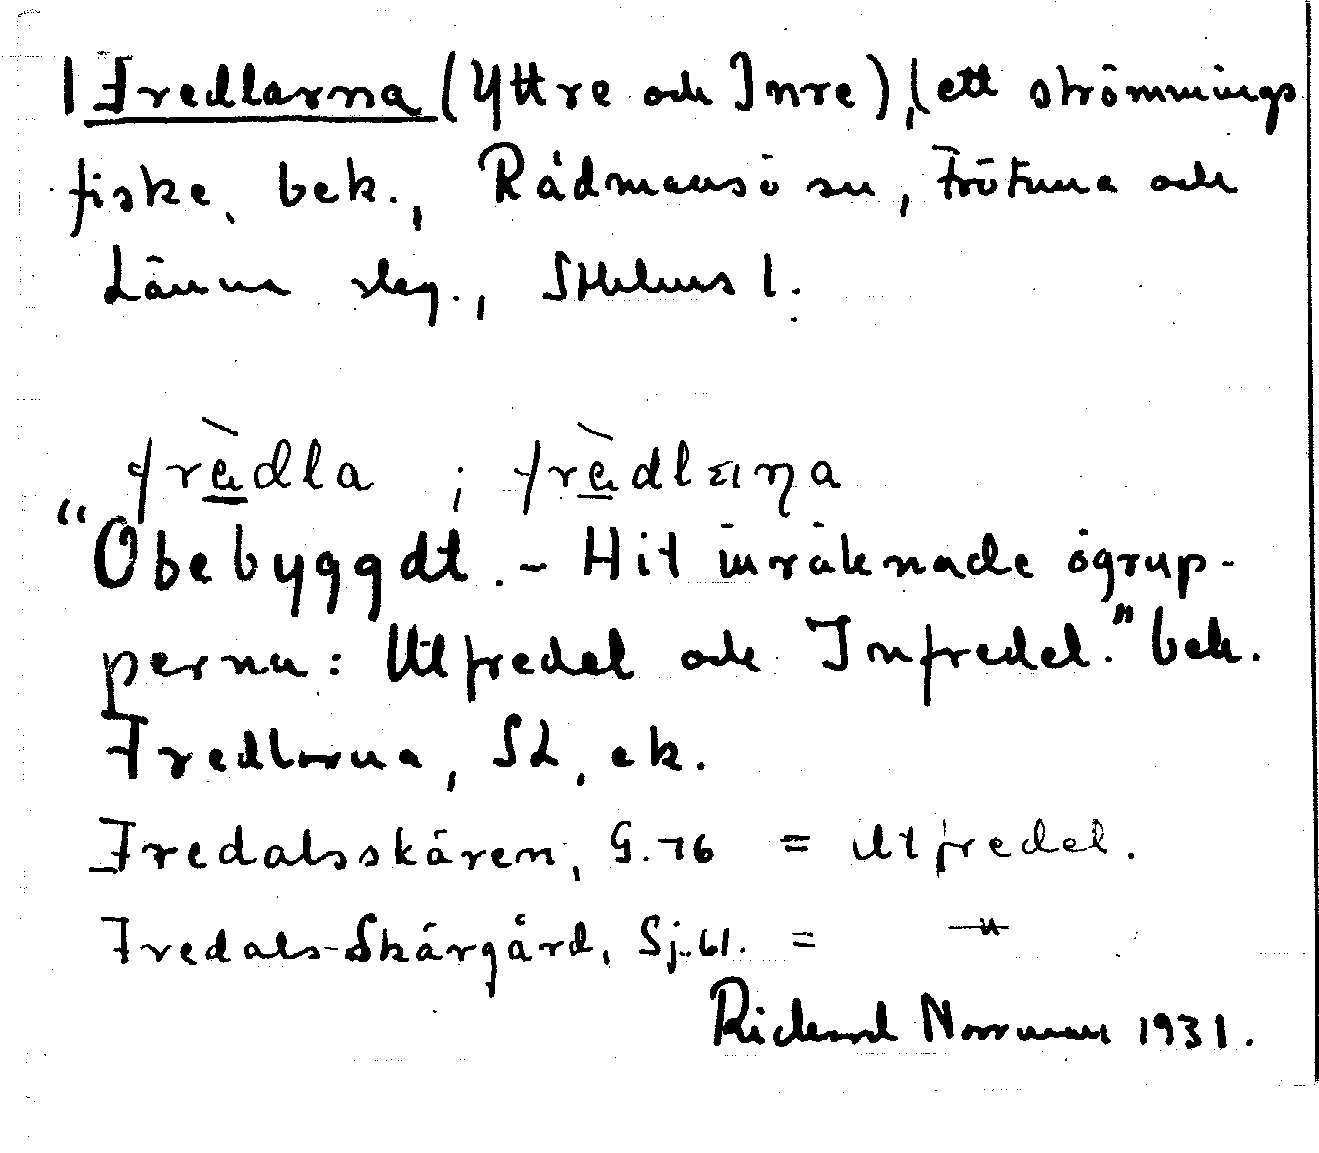 1 Fredlarna (Yttre och Inre), (ett strömmings
fiske, bek., Rådmansö sn, Frötuna och
Länna slag., Sthlms l.
frèdla ; frèdlaɿna
"Obebyggdt. - Hit inräknade ögrup-
perna: Utfredel och Infredel." bek.
Fredlarna, SL, ek.
Fredalsskären, G. 76 = Utfredel.
Fredals-Skärgård, Sj. 61. = —"—
Rickard Norrman 1931.